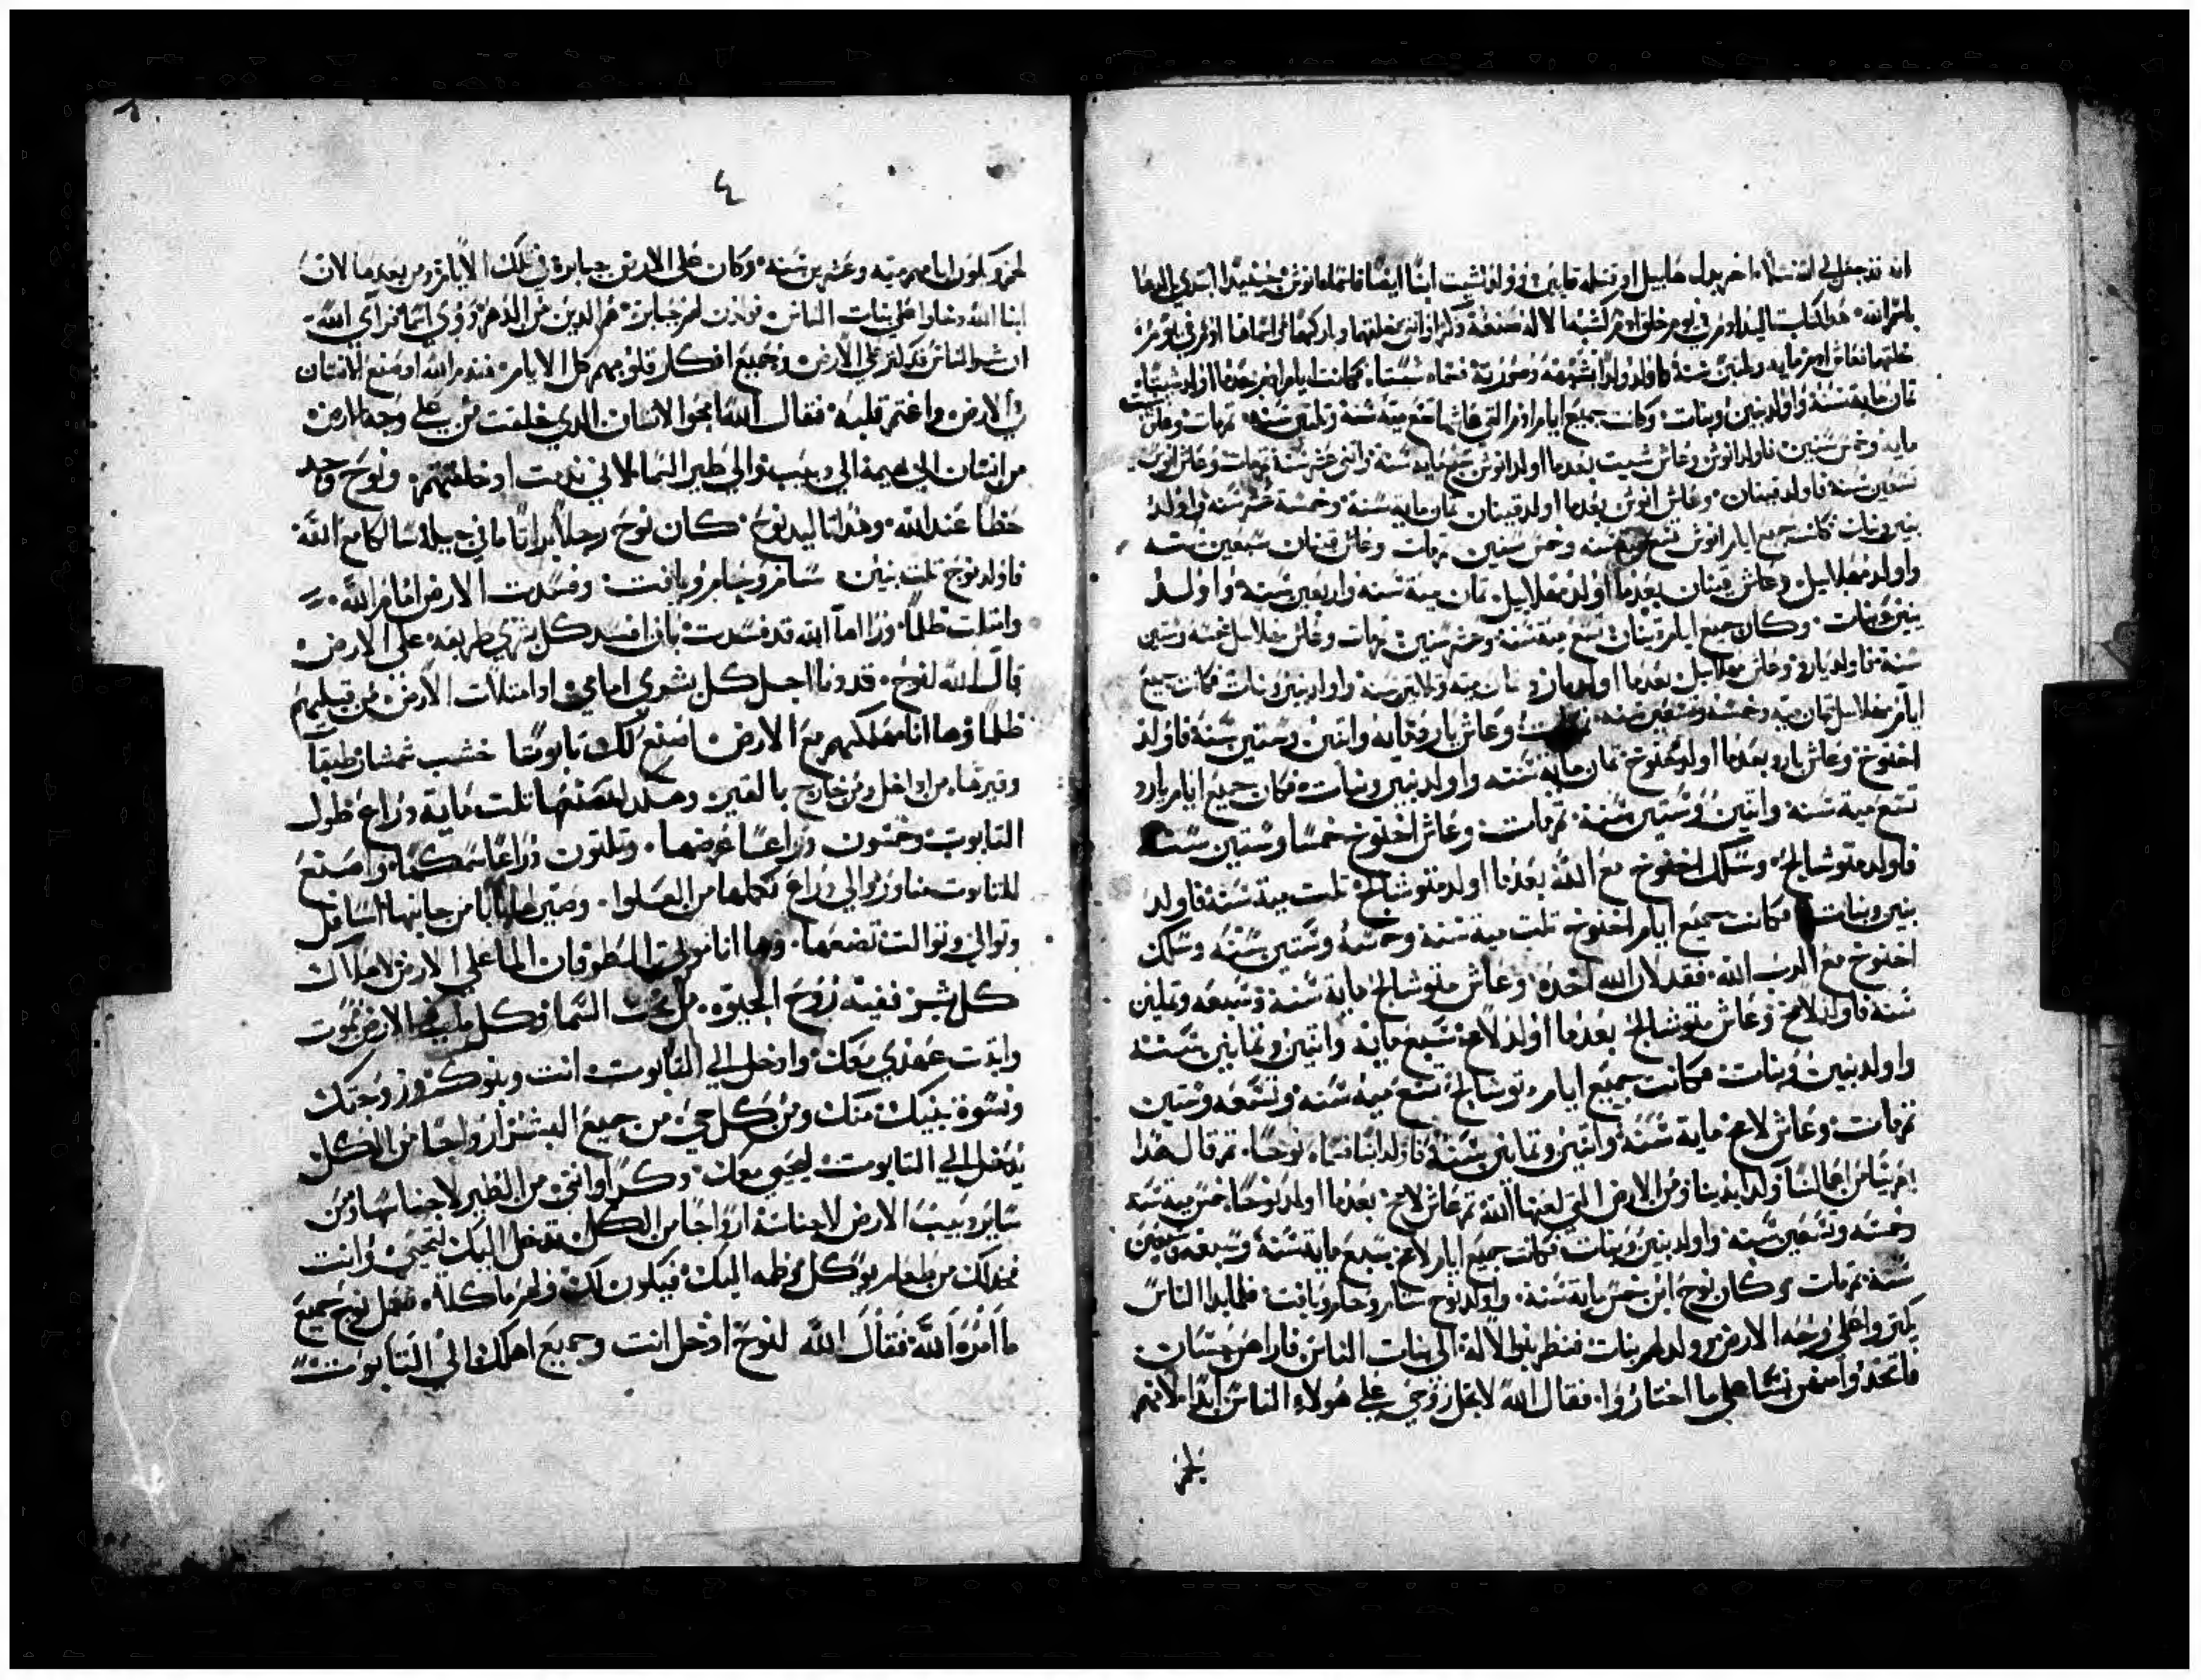 انه قد جعل لي الله نسلاً اخر بدل هابيل اد قتله قايين وولد لشيت ابنًا ايضًا فاسماه انوش حينيدًا ابتدي الدعا
باسم الله هدا كتاب تاليد ادم في يوم خلق ادم كشبه الاله صنعه دكرًا وانتي خلقهما وباركهما واسماهما ادم في يوم
خلقهما فعاش ادم مايه وتلتين سنة واولد ولدًا بشبهه وصورته فسماه شيتًا فكانت ايام ادم بعدما اولد شيتًا
تمان مايه سنة واولد بنين وبنات وكانت جميع ايام ادم التي عاشها تسع ميه سنة وتلتين سنه تم مات وعاش شيت
مايه وخمس سنين فاولد انوش وعاش شيت بعدما اولد انوش سبع مايه سنة واتني عشر سنة تم مات وعاش انوش
تسعين سنة فاولد قينان وعاش انوش بعدما اولد قينان تمان مايه سنة وخمسة عشر سنه واولد
بنين وبنات فكانت جميع ايام انوش تسع ميه سنه وخمس سنين تم مات وعاش قينان سبعين سنه
واولد مهلالاييل وعاش قينان بعدما اولد مهلالاييل تمان مية سنه واربعين سنه واولد
بنين وبنات وكان جميع ايام قينان تسع ميه سنه وعشر سنين تم مات وعاش مهلالاييل خمسه وستين
سنة فاولد يارد وعاش مهلالاييل بعدما اولد يارد تمان ميه وتلاتين سنة واولد بنين وبنات فكانت جميع
ايام مهلالاييل تمان ميه وخمسه وتسعين سنه وعاش يارد مايه واتنين وستين سنة فاولد
اخنوخ وعاش يارد بعدما اولد خنوخ تمان مايه سنه واولد بنين وبنات فكان جميع ايام يارد
تسع ميه سنة واتنين وستين سنة تم مات وعاش اخنوخ خمسًا وستين سنة
فاولد متوشالح وسلك اخنوخ مع الله بعدما اولد متوشالح تلت مية سنة فاولد
بنين وبنات فكانت جميع ايام اخنوخ تلت مية سنة وخمسة وستين سنة وسلك
اخنوخ مع الرب الله فقد لان الله اخده وعاش متوشالح مايه سنة وسبعه وتمنين
سنة فاولد لامخ وعاش متوشالح بعدما اولد لامخ سبع مايه واتنين وتمانين سنة
واولد بنين وبنات فكانت جميع ايام متوشالح تسع ميه سنه وتسعه وستين
تم مات وعاش لامخ مايه سنة واتنين وتمانين سنة فاولد ابنًا فسماه نوحًا تم قال هدا
يعزينا من اعمالنا وكد ايدينا ومن الارض التي لعنها الله تم عاش لامخ بعدما اولد نوحًا خمس مية سنة
وخمسه وتسعين سنة واولد بنين وبنات فكانت جميع ايام لامخ سبع مايه سنة وسبعه وسبعين
سنة تم مات وكان نوح ابن خمس مايه سنة واولد نوح سام وحام ويافت فلما بدا الناس
يكتروا علي وجه الارض وولد لهم بنات فنظر بنوا الاله الي بنات الناس فاراهن حسنات
فاتخدوا منهن نسًا علي ما اختاروا فقال الله لا تحل روحي علي هولاء الناس ابدًا لانهم
لحم
٤
لحم وتكون ايامهم ميه وعشرين سنه وكان علي الارض جبابرة في تلك الايام ومن بعدما لان
ابنا الله دخلوا علي بنات الناس فولدن لهم جبابرة هم الدين من الدهر دوي اسما فراي الله
ان شر الناس قد كتر علي الارض وجميع افكار قلوبهم كل الايام فندم الله اد صنع الانسان
في الارض واغتم قلبه فقال الله امحوا الانسان الدي خلقت من علي وجه الارض
من انسان الي بهيمة الي دبيب والي طير السما لاني ندمت اد خلقتهم ونوح وجد
حظًا عند الله وهدا تاليد نوح كان نوح رجلاً بارًا تامًا في جيله سالكًا مع الله
فاولد نوح تلت بنين سام وحام ويافت وفسدت الارض امام الله
وامتلت ظلمًا وراها الله قد فسدت بان افسد كل بشري طريقه علي الارض
قال الله لنوح قد دنا اجل كل بشري امامي اد امتلات الارض من قبلهم
ظلمًا وها انا مهلكهم مع الارض اصنع لك تابوتًا خشب شمشار طبقاً
وقيرها من داخل ومن خارج بالقير وهكدا تصنعها تلت ماية دراع طول
التابوت وخمسون دراعًا عرضها وتلتون دراعًا سمكها واصنع
للتابوت مناور والي دراع تكملها من العلوا وصير بابًا من جانبها اسافل
وتواني وتوالت تصنعها وها انا مولي الطوفان الما علي الارض لاهلاك
كل بشر ففيه روح الحيوه من تحت السما وكل ما في الارض يموت
واتبت عهدي معك وادخل الي التابوت انت وبنوك وزوجتك
ونسوة بنيك معك ومن كل حي من جميع البشر ازواجًا من الكل
يدخل الي التابوت ليحيي معك دكرًا وانتي من الطير لاجناسها ومن
ساير دبيب الارض لاجناسه ازواجًا من الكل تدخل اليك لتحيي وانت
فخد لك من طعام يوكل وضمه اليك فيكون لك ولهم ماكلاً ففعل نوح جميع
ما امره الله فقال الله لنوح ادخل انت وجميع اهلك الي التابوت